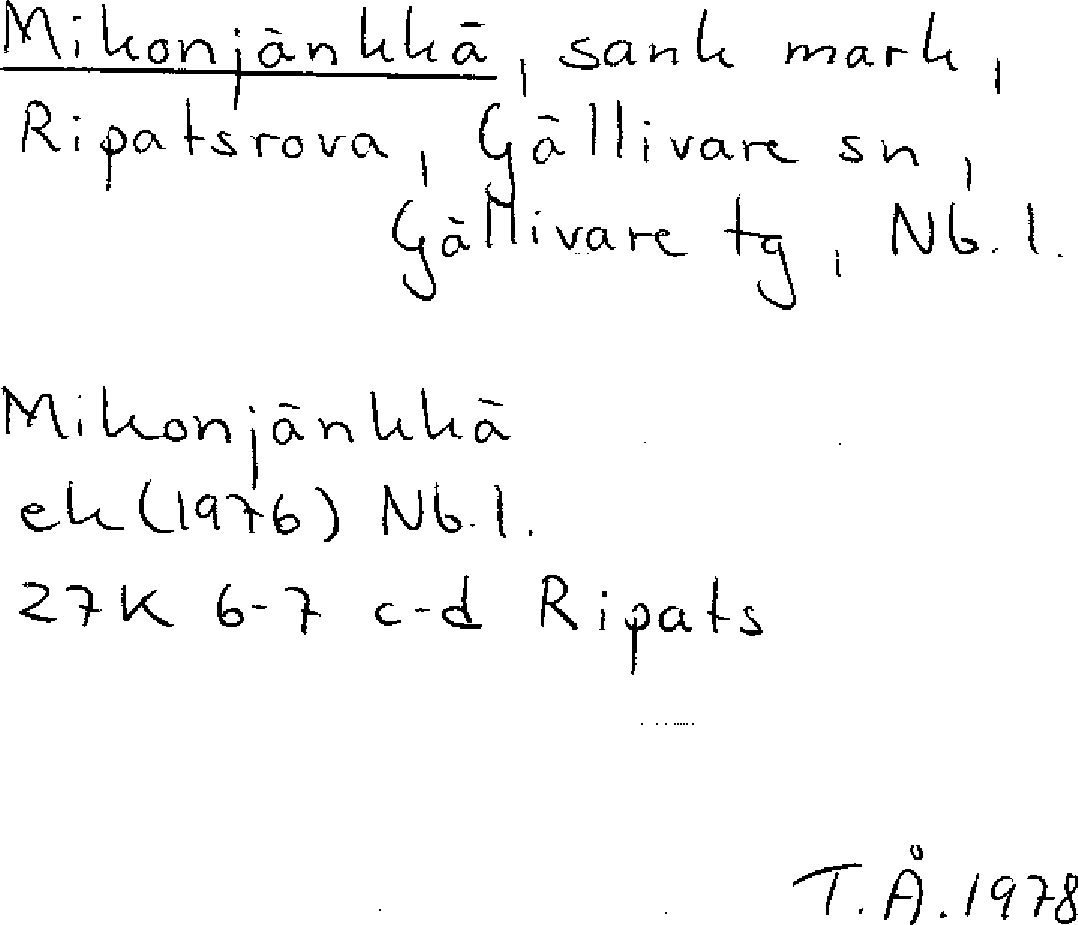 Mikonjänkkä, sank mark,
Ripatsrova, Gällivare sn,
Gällivare tg, Nb. l.
Mikonjänkkä
ek (1976) Nb. l.
27K 6-7 c-d Ripats
T. Å. 1978